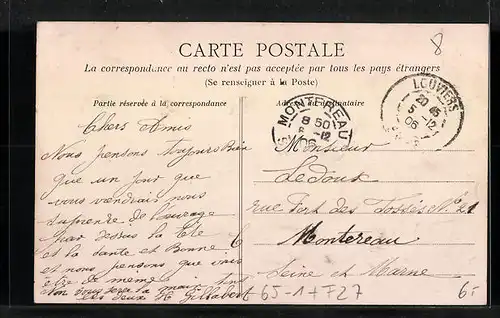 8
CARTE POSTALE
La correspondance au recto n'est pas acceptée par tous les pays étrangers
(Se renseigner à la Poste)
Partie réservée à la correspondance
Adresse du destinataire
MONTEREAU
8 50
8 -12
06
LOUVIERS
20 45
5 -12
06
Chers Amis
Nous pensons toujours Bien
que un jour que
vous vendrais nous
suprendre de l'ouvrage
par dessus la tete
et la sante et Bonne
et nous pensons que vous
etre de meme
la main
les deux H. Gillabert
Monsieur
Ledoux
rue Port des Fossés No 21
Montereau
Seine et Marne
65-1+F27
6.-